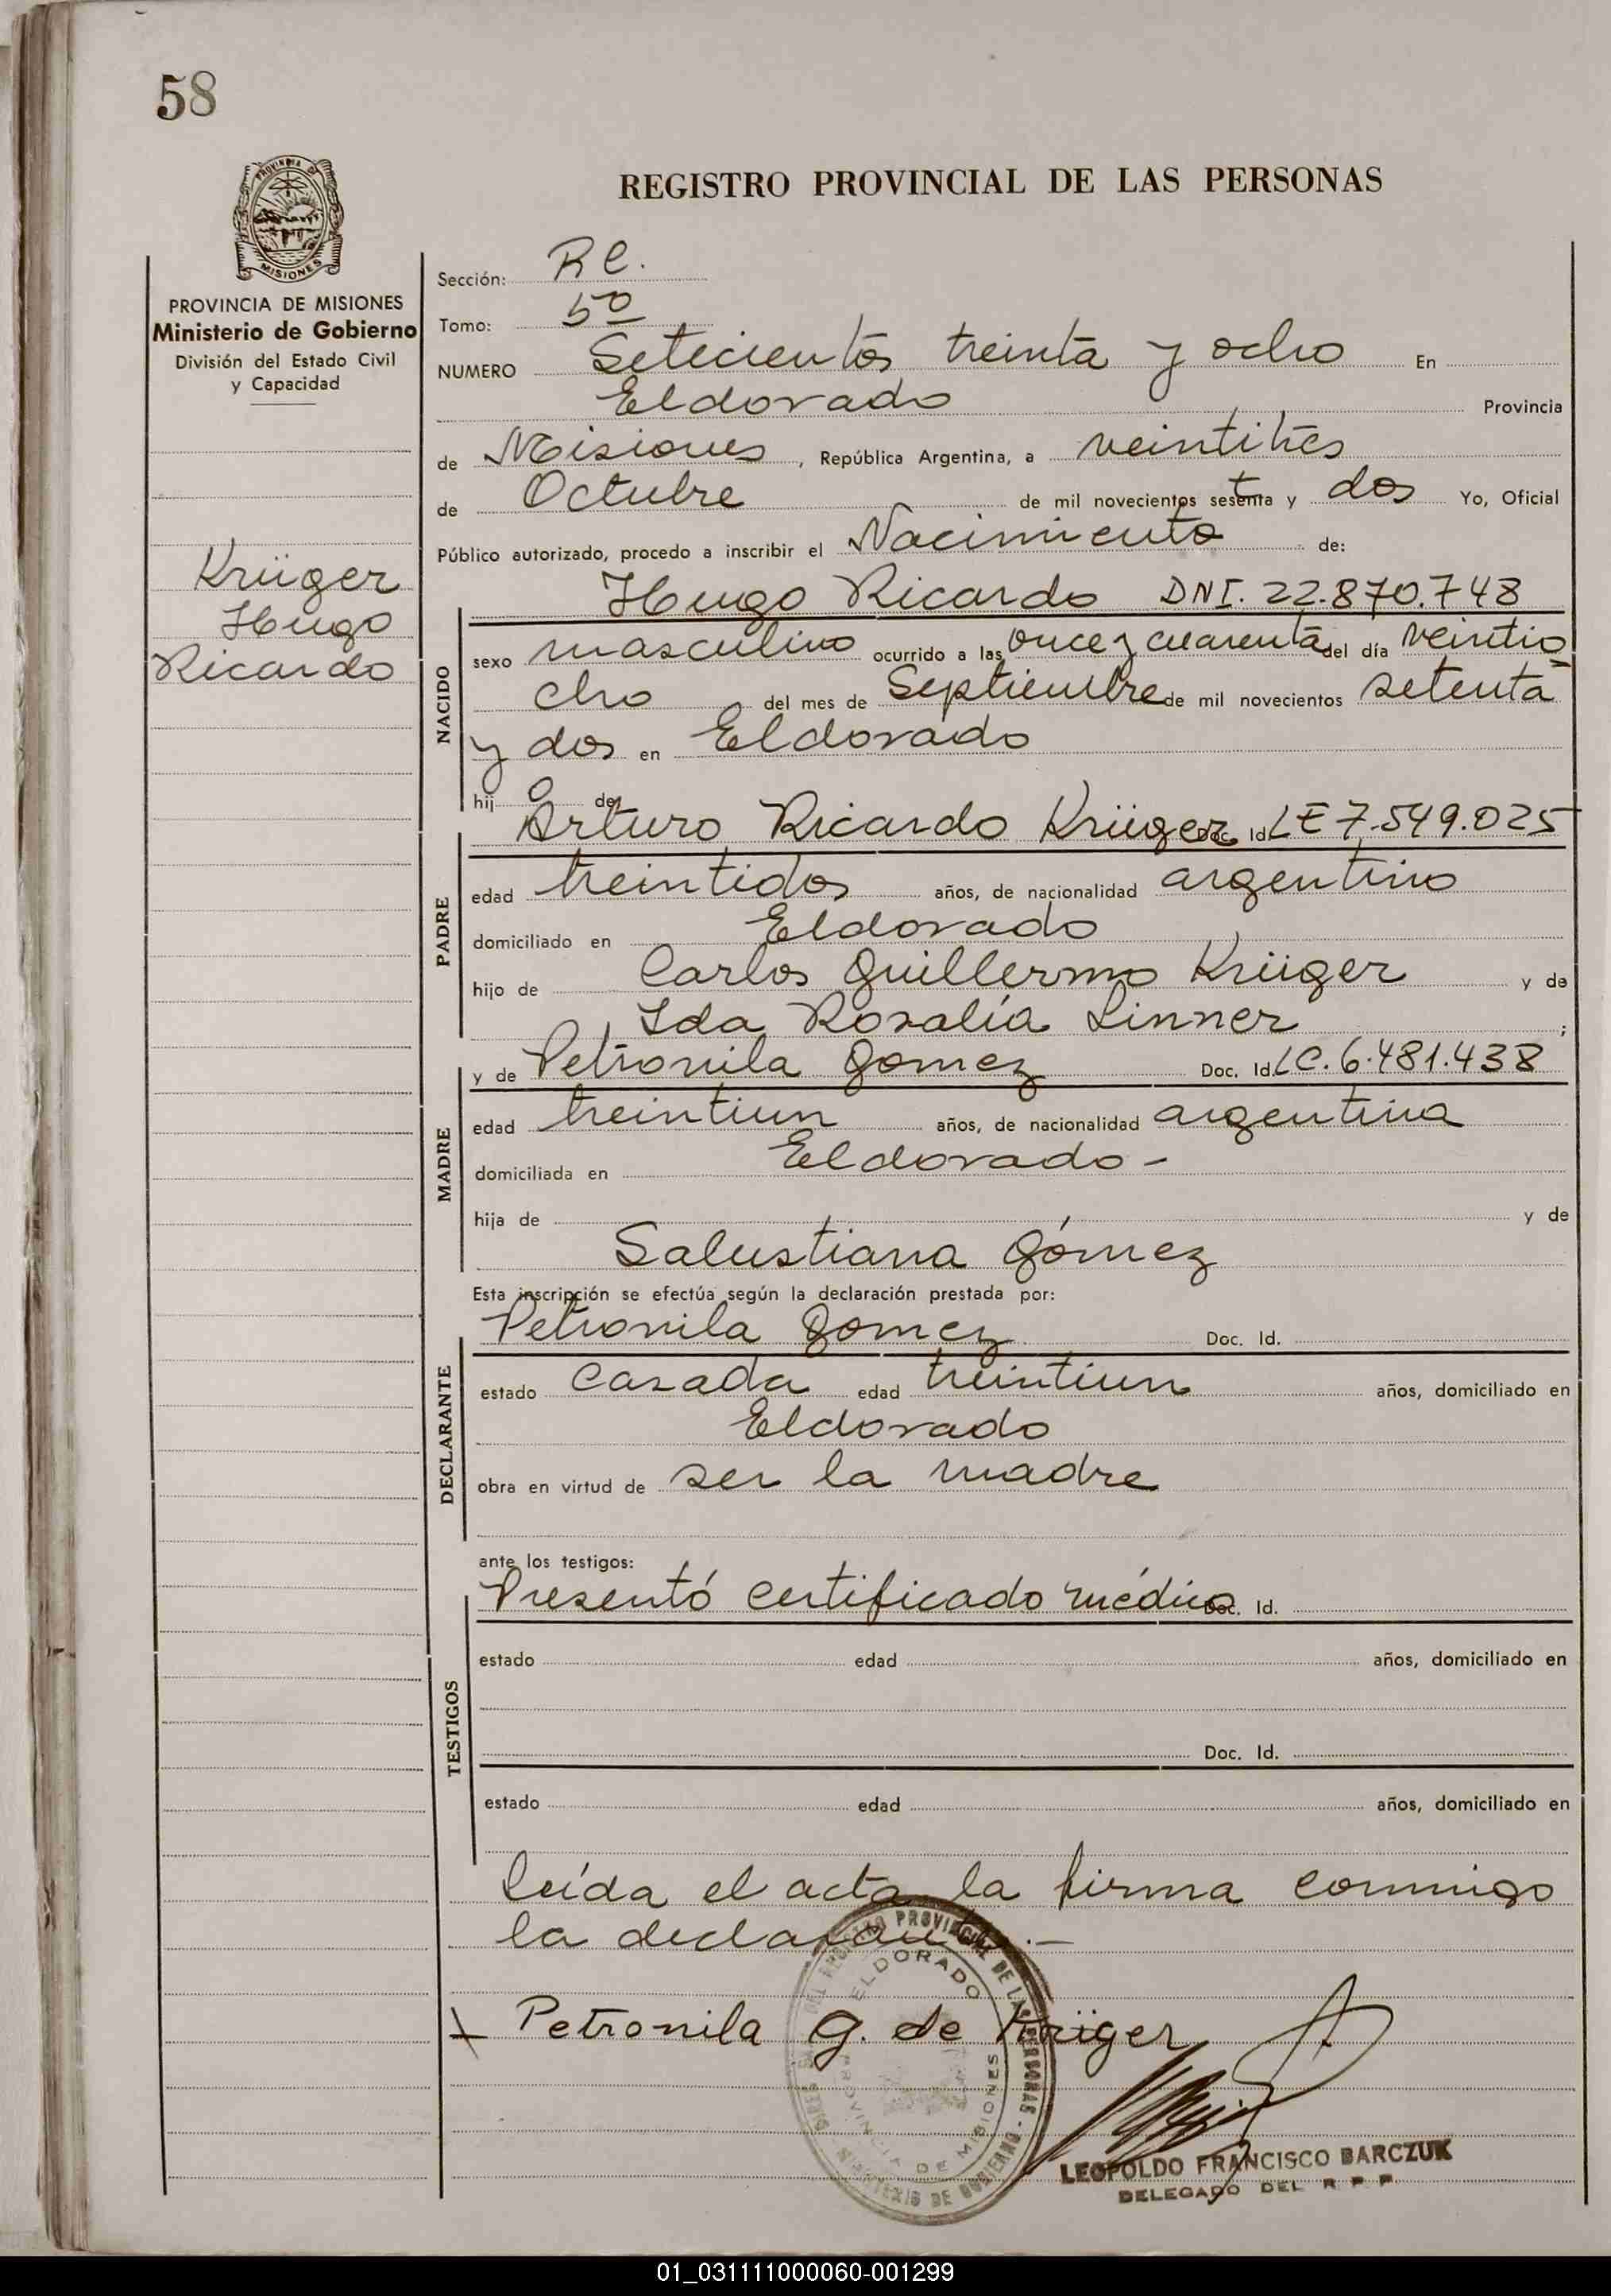 58
PROVINCIA DE
MISIONES
REGISTRO PROVINCIAL DE LAS PERSONAS
PROVINCIA DE MISIONES
Ministerio de Gobierno
División del Estado Civil
y Capacidad
Krüger
Hugo
Ricardo
Sección: RC.
Tomo: 5º
NUMERO Setecientos treinta y ocho En
Eldorado Provincia
de Misiones, República Argentina, a veintitrés
de Octubre de mil novecientos setenta y dos Yo, Oficial
Público autorizado, procedo a inscribir el Nacimiento de:
NACIDO
Hugo Ricardo DNI. 22.870.748
sexo masculino ocurrido a las once y cuarenta del día veintio
cho del mes de Septiembre de mil novecientos setenta
y dos en Eldorado
hijo de
PADRE
Arturo Ricardo Krüger Doc. Id. LE 7.549.025
edad treintidos años, de nacionalidad argentino
domiciliado en Eldorado
hijo de Carlos Guillermo Krüger y de
Ida Rosalía Linner ;
MADRE
y de Petronila Gomez Doc. Id. LC. 6.481.438
edad treintiun años, de nacionalidad argentina
domiciliada en Eldorado -
hija de y de
Salustiana Gómez
Esta inscripción se efectúa según la declaración prestada por:
DECLARANTE
Petronila Gomez Doc. Id.
estado casada edad treintiun años, domiciliado en
Eldorado
obra en virtud de ser la madre
ante los testigos:
TESTIGOS
Presentó certificado médico Doc. Id.
estado edad años, domiciliado en
Doc. Id.
estado edad años, domiciliado en
leída el acta la firma conmigo
la declarante.-
Petronila G. de Krüger
DEL REGISTRO PROVINCIAL DE LAS PERSONAS
ELDORADO
PROVINCIA DE MISIONES
LEOPOLDO FRANCISCO BARCZUK
DELEGADO DEL R P P
01_031111000060-001299